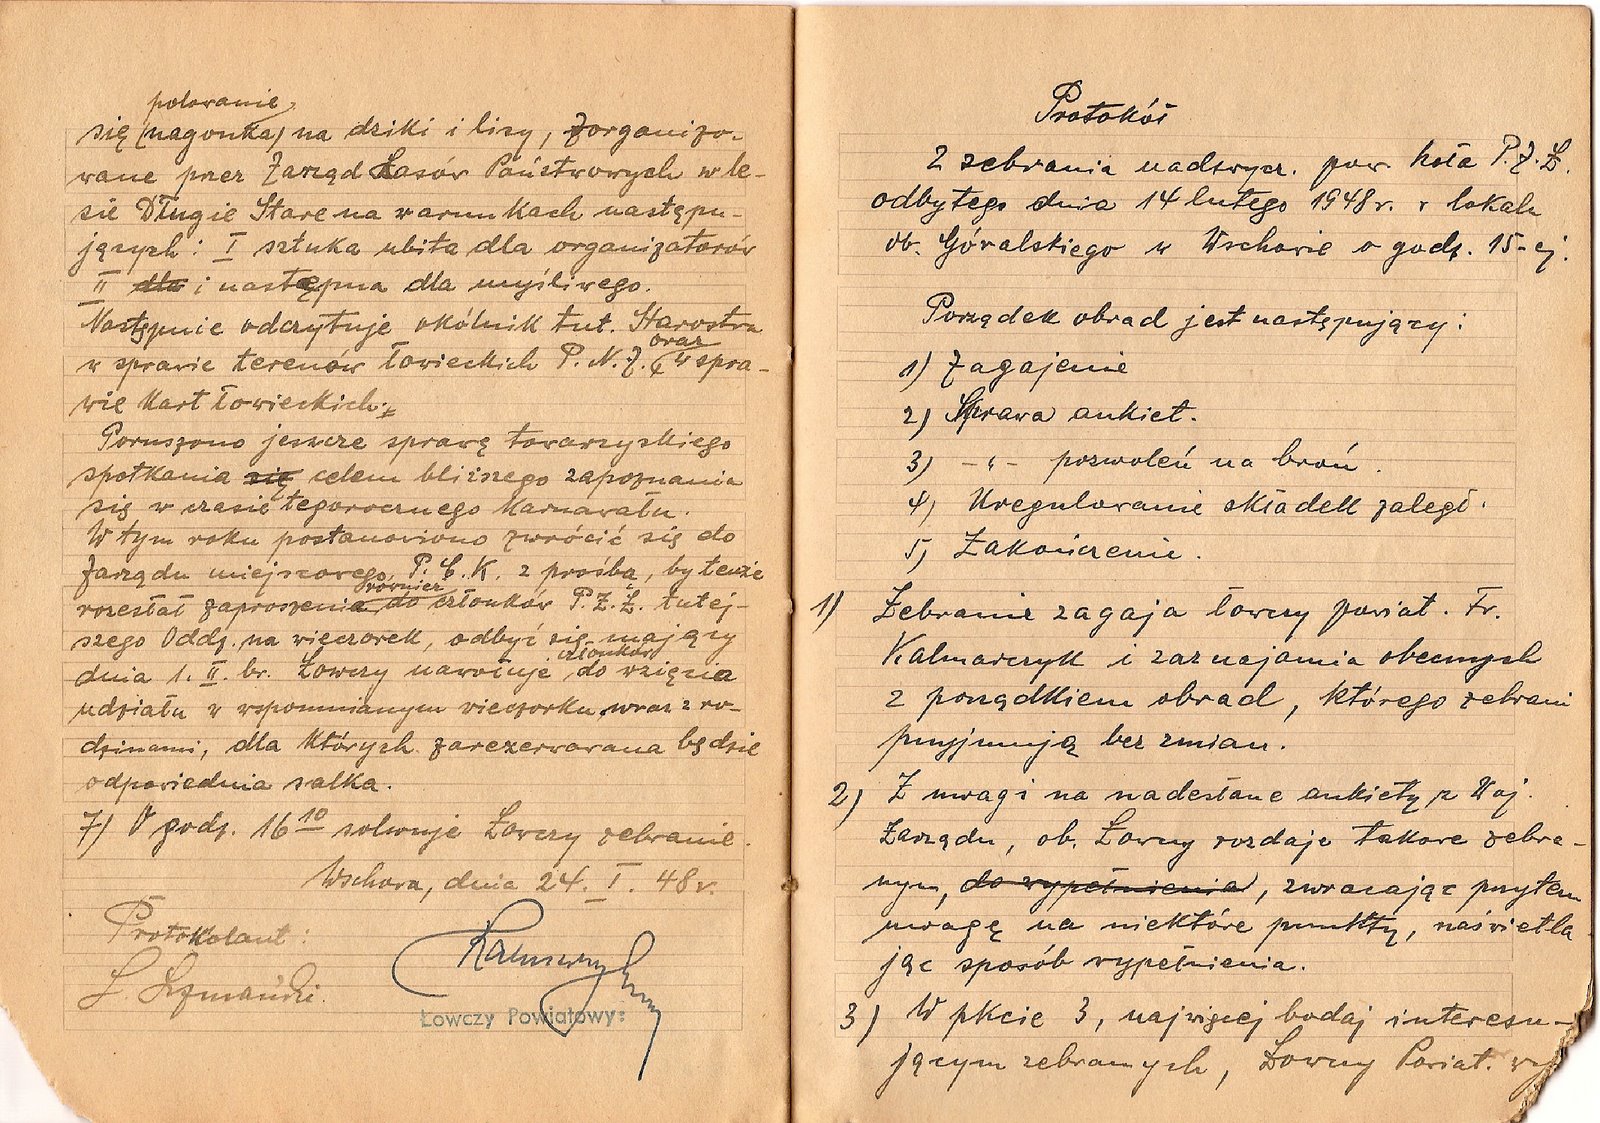 polowanie
się (nagonka) na dziki i lisy, zorganizo-
wane przez Zarząd Lasów Państwowych w le-
sie Długie Stare na warunkach następu-
jących: I sztuka ubita dla organizatorów
II dla i następna dla myśliwego.
Następnie odczytuje okólnik tut. Starostwa
oraz
w sprawie terenów łowieckich P.N.Z. w spra-
wie kart łowieckich.
Poruszono jeszcze sprawę towarzyskiego
spotkania się celem bliższego zapoznania
się w czasie tegorocznego karnawału.
W tym roku postanowiono zwrócić się do
Zarządu miejscowego P.C.K. z prośbą, by tenże
również
rozesłał zaproszenia do członków P.Z.Ł. tutej-
szego Oddz. na wieczorek, odbyć się mający
członków
dnia 1. II. br. Łowczy nawołuje do wzięcia
udziału w wspomnianym wieczorku wraz z ro-
dzinami, dla których zarezerwowana będzie
odpowiednia salka.
7) O godz. 16 10 solwuje Łowczy zebranie.
Wschowa, dnia 24. I. 48 r.
Protokolant:
Łowczy Powiatowy:
Protokół
Z zebrania nadzwycz. pow. koła P.Z.Ł.
odbytego dnia 14 lutego 1948 r. w lokalu
ob. Góralskiego w Wschowie o godz. 15-ej.
Porządek obrad jest następujący:
1) Zagajenie
2) Sprawa ankiet.
3) -"- pozwoleń na broń.
4) Uregulowanie składek zaległ.
5) Zakończenie.
1) Zebranie zagaja łowczy powiat. Fr.
Kalmarczyk i zaznajamia obecnych
z porządkiem obrad, którego zebrani
przyjmują bez zmian.
2) Z uwagi na nadesłane ankiety z Woj.
Zarządu, ob. Łowczy rozdaje takowe zebra-
nym, do wypełnienia, zwracając przytem
uwagę na niektóre punkty, naświetla
jąc sposób wypełnienia.
3) W pkcie 3, najwięcej bodaj interesu-
jącym zebranych, Łowczy Powiat.